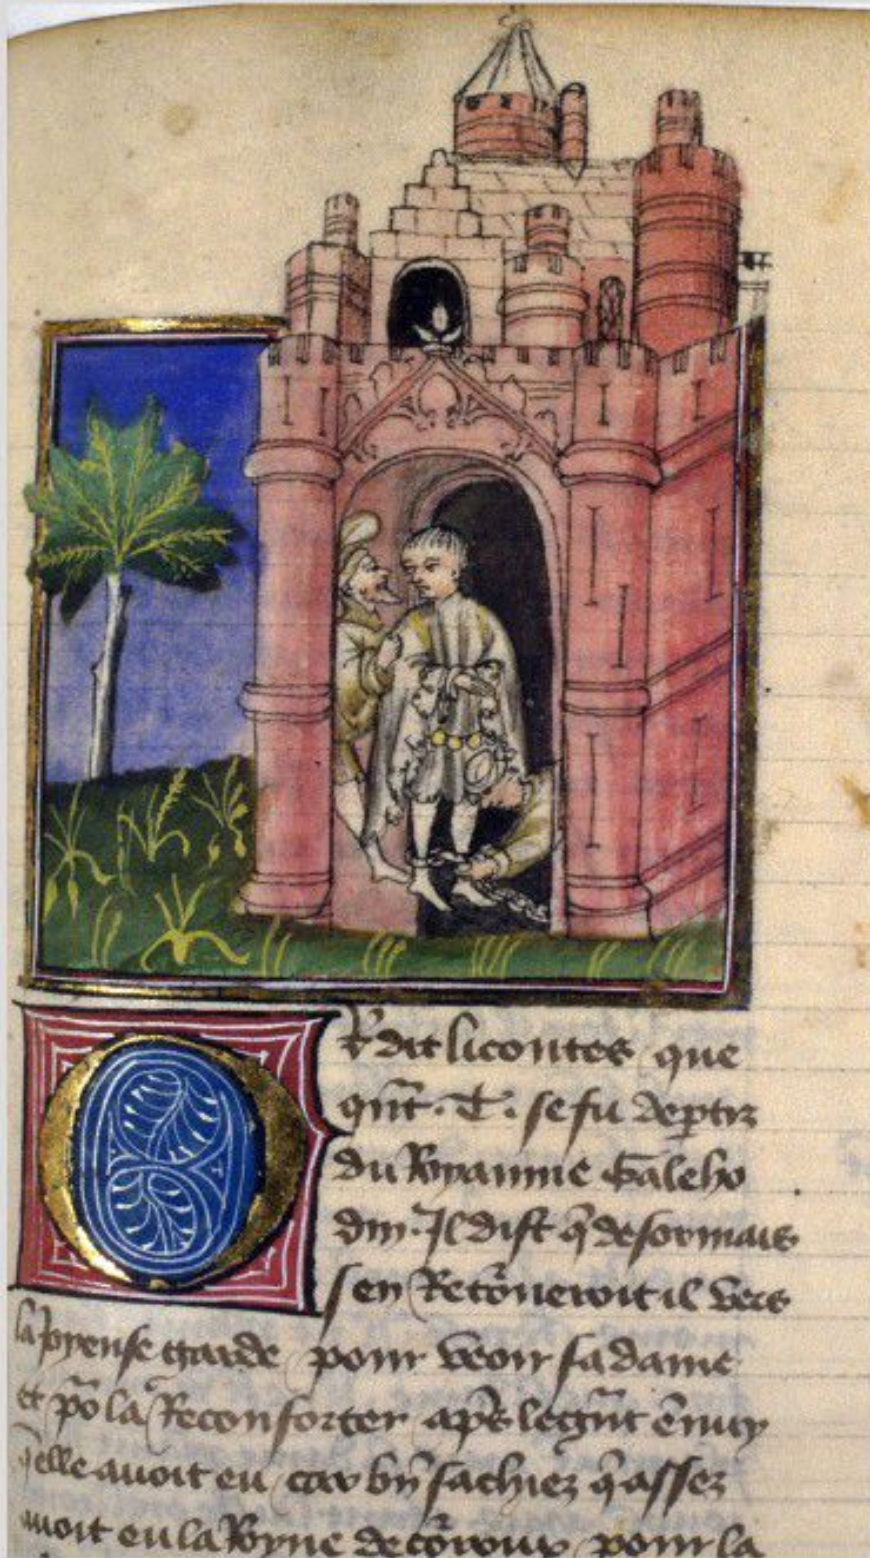 Or dit li contes que
qn̄t · T · se fu dep̄tiz
du Royaume Galeho
din · Il dist q̄ desormais
sen Ret͛neroit il vers
la joyeuse garde pour veoir sa dame
et po͛ la Reconforter ap̄s le gn̄t ēnuy
q̄lle auoit eu car bn̄ sachiez q̄ assez
auoit eu la Royne de co͛roux pour la